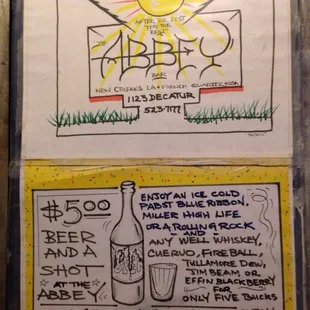 AFTER THE FEST
TRY THE
REST
THE
ABBEY
BAR
NEW ORLEANS LA • FRENCH QUARTER • USA
1123 DECATUR
523-7177
$5.00
BEER
AND A
SHOT
AT THE
ABBEY
ENJOY AN ICE COLD
PABST BLUE RIBBON,
MILLER HIGH LIFE
OR A ROLLING ROCK
AND
ANY WELL WHISKEY,
CUERVO, FIREBALL,
TULLAMORE DEW,
JIM BEAM OR
EFFIN BLACKBERRY
FOR
ONLY FIVE BUCKS